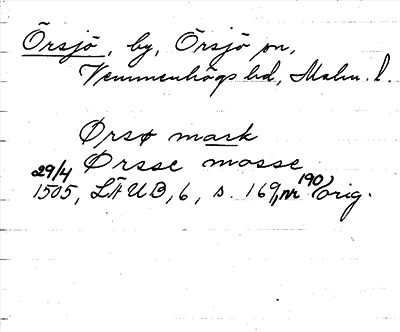 Örsjö, by, Örsjö sn,
Vemmenhögs hd, Malm. l.
Ørsø mark
Ørsse mosse
29/4 1505, LÄUB, 6, s. 169, nr 190, orig.